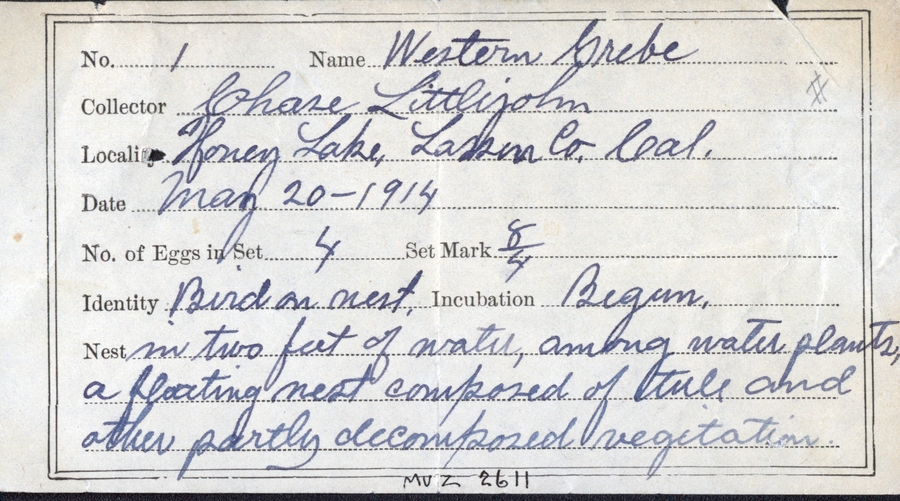 No. 1 Name Western Grebe
#
Collector Chase Littlejohn
Locality Honey Lake, Lassen Co. Cal.
Date May 20-1914
No. of Eggs in Set 4 Set Mark 8/4
Identity Bird on nest, Incubation Begun.
Nest in two feet of water, among water plants,
a floating nest composed of tule and
other partly decomposed vegitation.
MVZ 2611